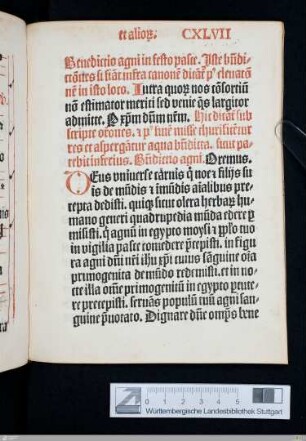 et alioꝝ. CXLVII
Benedictio agni in festo pasce. Iste bn̄di
ctiōnes si fiāt infra canonē dicāt̄ pꝰ eleuatiō
nē in isto loco. Intra quoꝝ nos cōsortiū
nō estimator meriti sed venie q̄s largitor
admitte. Per xp̄m dn̄m nr̄m. Hic dicāt̄ sub
scripte orōnes. ⁊ pꝰ finē misse thurificētur
res et aspergātur aqua bn̄dicta. sicut pa-
tebit inferius. Bn̄dictio agni. Oremus.
DEus vniuerse carnis q̄ noe ⁊ filijs su
is de mūdis ⁊ īmūdis aīalibus pre
cepta dedisti. quiqꝫ sicut olera herbaꝝ hu
mano generi quadrupedia mūda edere ꝑ
misisti. q̄ agnū in egypto moysi ⁊ pplo tuo
in vigilia pasce comedere p̄cepisti. in figu
ra agni dn̄i nr̄i ihu xp̄i cuius sāguine oīa
primogenita de mūdo redemisti. et in no
cte illa oīne primogenitū in egypto ꝑcute
re precepisti. seruās populū tuū agni san
guine p̄notato. Dignare dn̄e omp̄s bene
cm
Württembergische Landesbibliothek Stuttgart